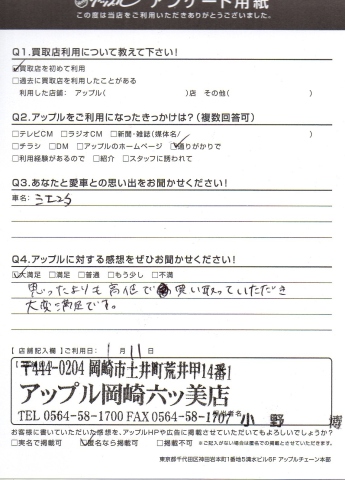 アンケート用紙
この度は当店をご利用いただきありがとうございました。
Q1.買取店利用について教えて下さい!
☑買取店を初めて利用
□過去に買取店を利用したことがある
利用した店舗: アップル( )店 その他( )
Q2.アップルをご利用になったきっかけは?(複数回答可)
□テレビCM □ラジオCM □新聞・雑誌(媒体名/ )
□チラシ □DM □アップルのホームページ ☑通りがかりで
□利用経験があるので □紹介 □スタッフに誘われて
Q3.あなたと愛車との思い出をお聞かせください!
車名:
Q4.アップルに対する感想をぜひお聞かせください!
☑大満足 □満足 □普通 □もう少し □不満
思ったよりも高価で買い取っていただき
大変満足です。
【店舗記入欄】ご利用日: 1月11日
〒444-0204 岡崎市土井町荒井甲14番1
アップル岡崎六ッ美店
TEL 0564-58-1700 FAX 0564-58-1707
小野 博
お客様に書いていただいた感想を、アップルHPや広告に掲載させていただいてもよろしいでしょうか?
□実名で掲載可 ☑匿名なら掲載可 □掲載不可 ※ご記入がない場合は匿名での掲載とさせていただきます。
東京都千代田区神田岩本町1番地5清水ビル6F アップルチェーン本部